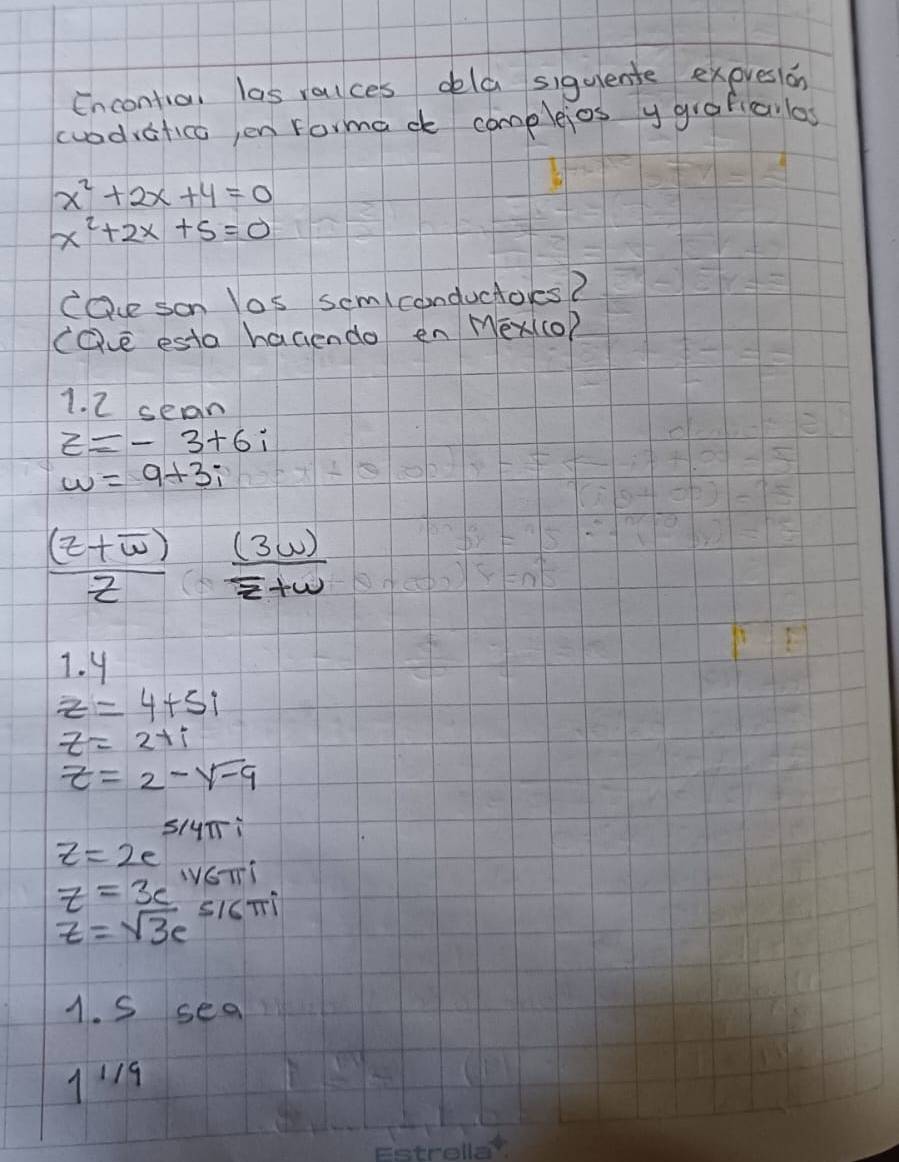 Encontrar las raices dela siguiente expresión
cuadrática, en forma de complejos y graficarlos
x² + 2x + 4 = 0
x² + 2x + 5 = 0
¿Que son los semiconductores?
¿Qué esta haciendo en México?
1.2 sean
z = - 3 + 6i
w = 9 + 3i
(z + w̅) (3w)
z z̅ + w
1.4
z = 4 + 5i
z = 2 + i
z = 2 - √-9
z = 2e^5/4πi
z = 3e^11/6πi
z = √3e^5/6πi
1.5 sea
1^1/9
Estrella